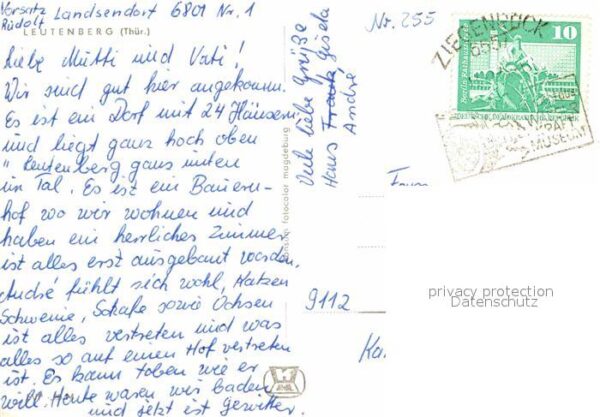 Vorsatz Landsendorf 6801 Nr. 1
Rudolf
LEUTENBERG (Thür.)
Liebe Mutti und Vati!
Wir sind gut hier angekommen.
Es ist ein Dorf mit 24 Häusern
und liegt ganz hoch oben
" Leutenberg ganz unten
im Tal. Es ist ein Bauern-
hof wo wir wohnen und
haben ein herrliches Zimmer
ist alles erst ausgebaut worden.
André fühlt sich wohl, Katzen
Schweine, Schafe sowie Ochsen
ist alles vertreten und was
alles so auf einen Hof vertreten
ist. Es kann toben wie er
will. Heute waren wir baden
und jetzt ist Gewitter.
Nr. 255
Viele liebe Grüße
Hans Gisela
André
fotocolor magdeburg
ZIEGENRÜCK
655
10
MUSEUM
9112
privacy protection
Datenschutz